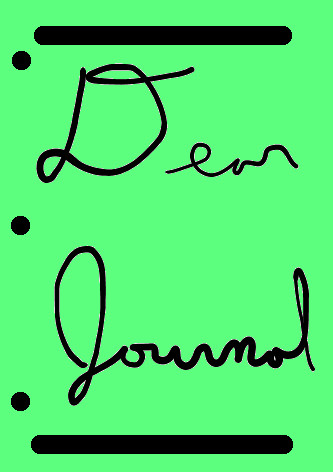 Dear
Journal